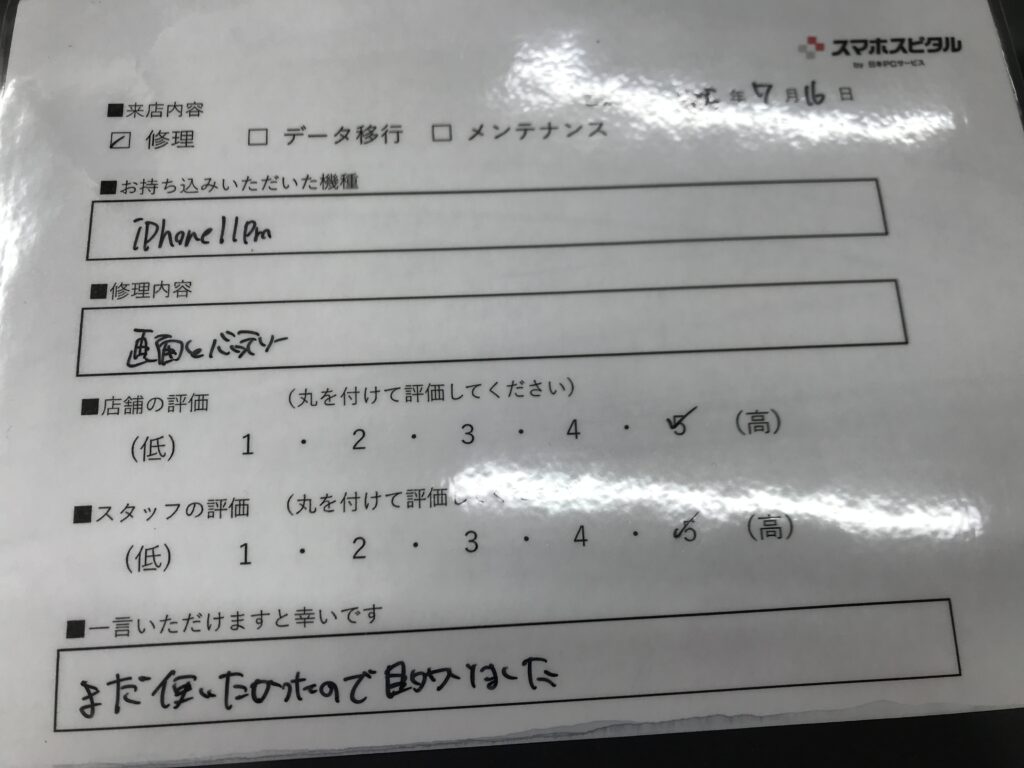 スマホスピタル
by 日本PCサービス
年 7 月 16 日
■来店内容
☑ 修理 □ データ移行 □ メンテナンス
■お持ち込みいただいた機種
iPhone11Pm
■修理内容
画面とバッテリー
■店舗の評価 （丸を付けて評価してください）
（低） 1 ・ 2 ・ 3 ・ 4 ・ 5 （高）
■スタッフの評価 （丸を付けて評価して
（低） 1 ・ 2 ・ 3 ・ 4 ・ 5 （高）
■一言いただけますと幸いです
まだ使いたかったので助かりました